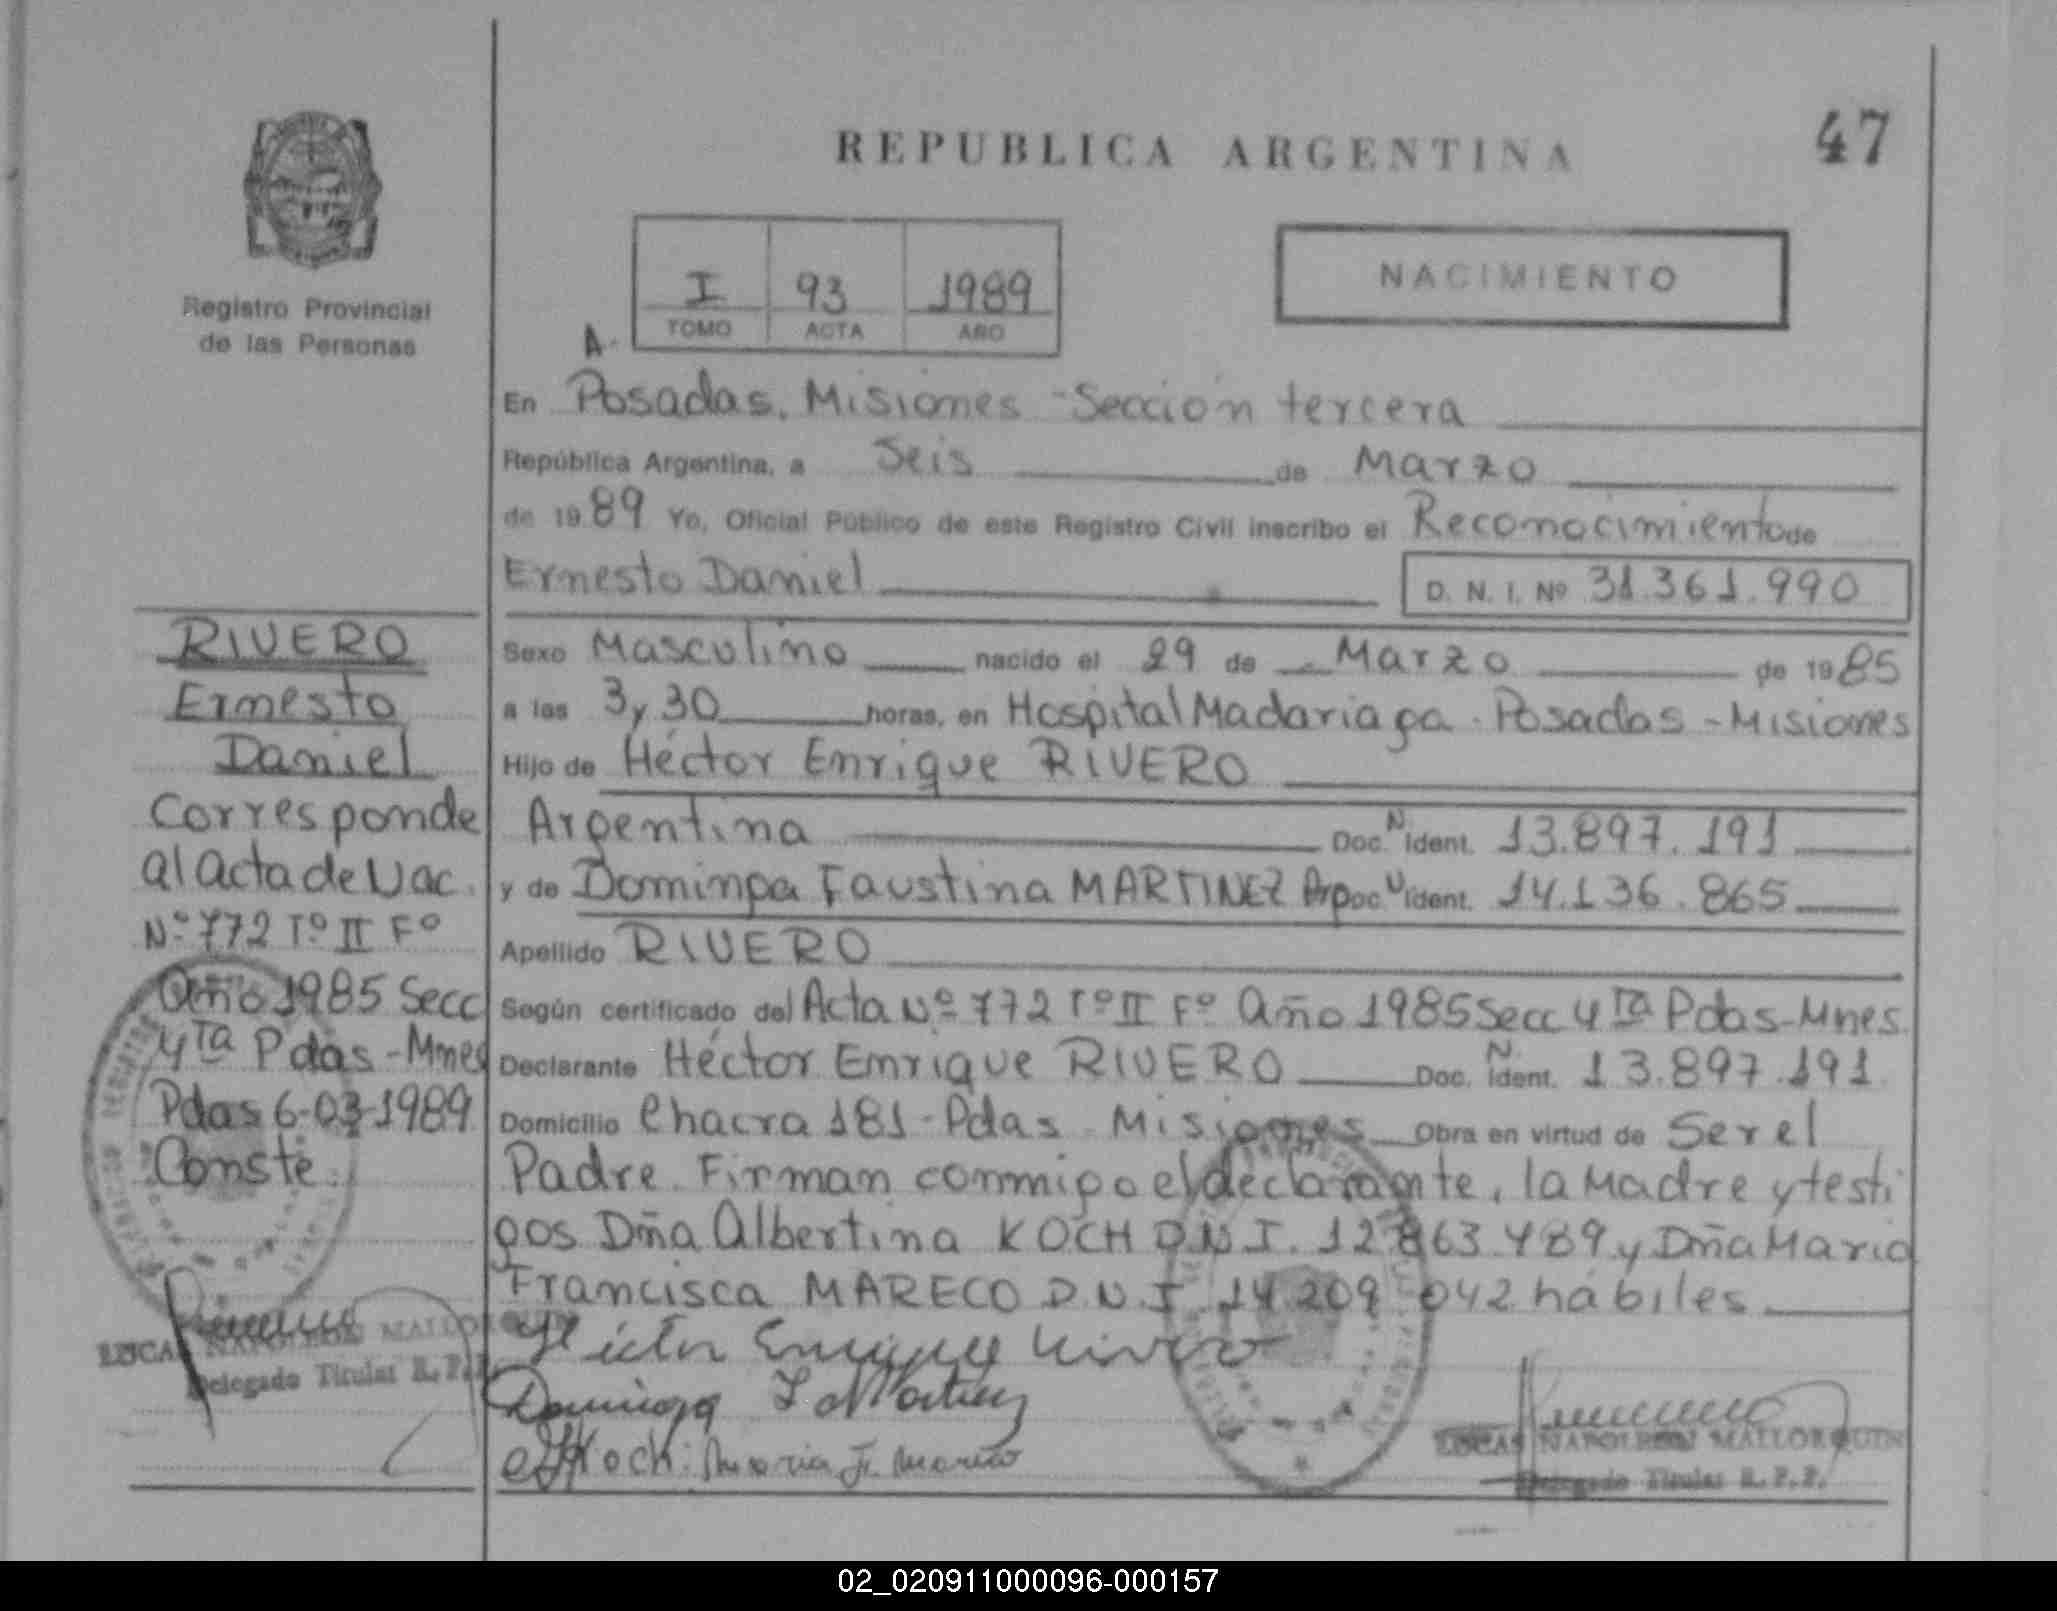 REPUBLICA ARGENTINA
47
Registro Provincial
de las Personas
I 93 1989
TOMO ACTA AÑO
A.
NACIMIENTO
En Posadas. Misiones - Sección tercera
República Argentina, a Seis de Marzo
de 1989 Yo, Oficial Público de este Registro Civil inscribo el Reconocimiento de
Ernesto Daniel D. N. I. Nº 31.361.990
Sexo Masculino nacido el 29 de Marzo de 1985
a las 3 y 30 horas, en Hospital Madariaga. Posadas - Misiones
Hijo de Héctor Enrique RIVERO
Argentina Doc. N. Ident. 13.897.191
y de Dominga Faustina MARTINEZ Arg Doc. N Ident. 14.136.865
Apellido RIVERO
Según certificado del Acta Nº 772 Tº II Fº Año 1985 Secc 4ta Pdas-Mnes
Declarante Héctor Enrique RIVERO Doc. N. Ident. 13.897.191
Domicilio Chacra 181 - Pdas - Misiones Obra en virtud de Ser el
Padre. Firman conmigo el declarante, la Madre y testi
gos Dña Albertina KOCH D.N.I. 12.863.489 y Dña Maria
Francisca MARECO D.N.I. 14.209.042 hábiles
Héctor Enrique Rivero
Dominga F Martinez
Koch. Maria F. Mareco
LUCAS NAPOLEON MALLORQUIN
Delegado Titular R.P.P.
RIVERO
Ernesto
Daniel
Corresponde
al acta de Nac.
Nº 772 Tº II Fº
Año 1985 Secc
4ta Pdas - Mnes
Pdas 6-03-1989
Conste.
LUCAS NAPOLEON MALLOR
Delegado Titular R.P.P.
02_020911000096-000157